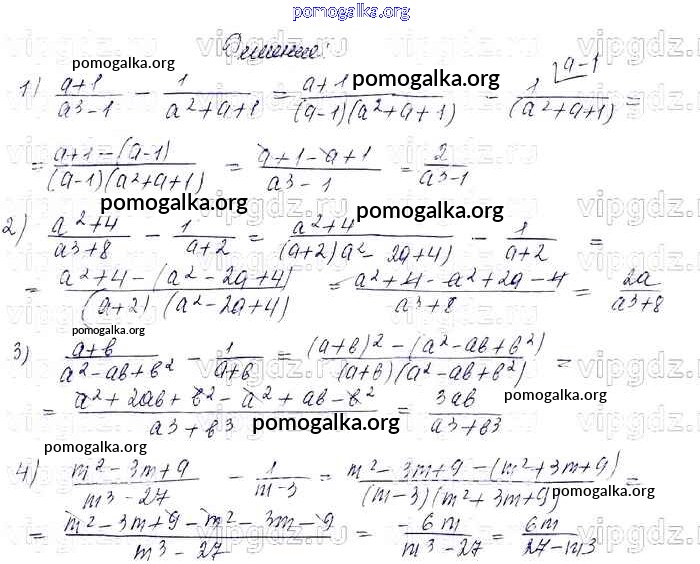 pomogalka.org
Решение:
pomogalka.org pomogalka.org
1) (a+1)/(a³-1) - 1/(a²+a+1) = (a+1)/((a-1)(a²+a+1)) - 1/(a²+a+1) ⌊a-1 =
= (a+1-(a-1))/((a-1)(a²+a+1)) = (a+1-a+1)/(a³-1) = 2/(a³-1)
pomogalka.org pomogalka.org
2) (a²+4)/(a³+8) - 1/(a+2) = (a²+4)/((a+2)(a²-2a+4)) - 1/(a+2) =
= (a²+4-(a²-2a+4))/((a+2)(a²-2a+4)) = (a²+4-a²+2a-4)/(a³+8) = 2a/(a³+8)
pomogalka.org
3) (a+b)/(a²-ab+b²) - 1/(a+b) = ((a+b)²-(a²-ab+b²))/((a+b)(a²-ab+b²)) =
= (a²+2ab+b²-a²+ab-b²)/(a³+b³) = 3ab/(a³+b³)
pomogalka.org pomogalka.org pomogalka.org
4) (m²-3m+9)/(m³-27) - 1/(m-3) = (m²-3m+9-(m²+3m+9))/((m-3)(m²+3m+9)) =
pomogalka.org pomogalka.org
= (m²-3m+9-m²-3m-9)/(m³-27) = -6m/(m³-27) = 6m/(27-m³)
vipgdz.ru